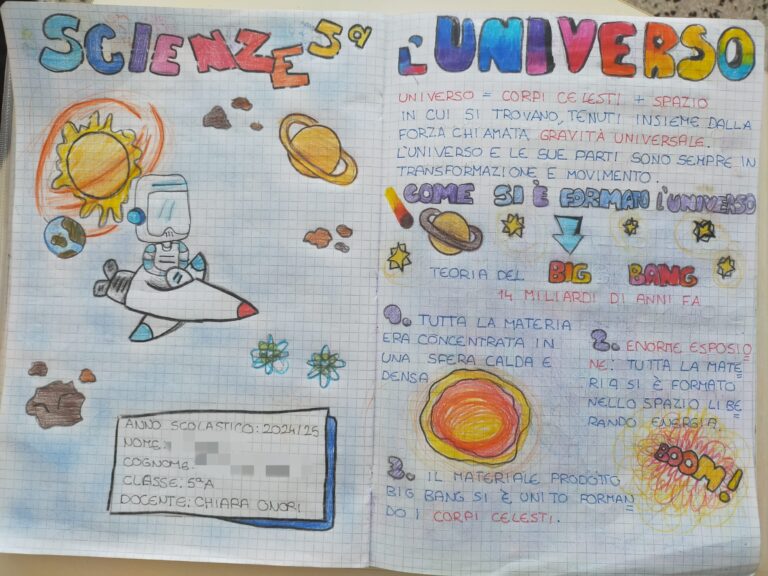 SCIENZE 5ª
ANNO SCOLASTICO: 2024/25
NOME:
COGNOME:
CLASSE: 5ªA
DOCENTE: CHIARA ONORI
L'UNIVERSO
UNIVERSO = CORPI CELESTI + SPAZIO
IN CUI SI TROVANO, TENUTI INSIEME DALLA
FORZA CHIAMATA GRAVITÀ UNIVERSALE.
L'UNIVERSO E LE SUE PARTI SONO SEMPRE IN
TRANSFORMAZIONE E MOVIMENTO.
COME SI È FORMATO L'UNIVERSO
TEORIA DEL BIG BANG
14 MILIARDI DI ANNI FA
1. TUTTA LA MATERIA
ERA CONCENTRATA IN
UNA SFERA CALDA E
DENSA
2. ENORME ESPOSIO
NE: TUTTA LA MATE
RIA SI È FORMATO
NELLO SPAZIO LIBE
RANDO ENERGIA.
BOOM!
3. IL MATERIALE PRODOTTO
BIG BANG SI È UNITO FORMAN
DO I CORPI CELESTI.